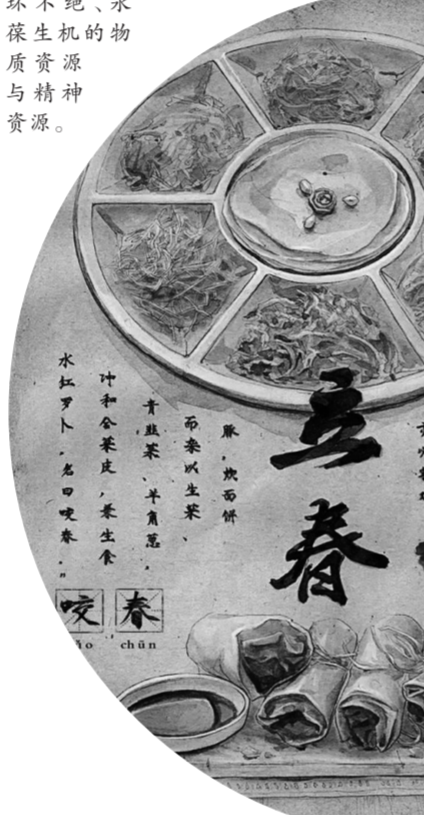 环不绝、永
葆生机的物
质资源
与精神
资源。
立春
豚,炊面饼
而杂以生菜、
青韭菜、羊角葱,
冲和合菜皮,兼生食
水红萝卜,名曰咬春。”
咬春
chūn